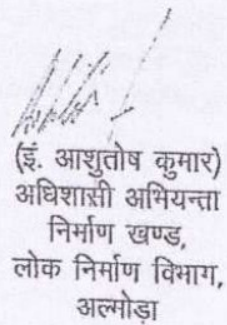 (इं. आशुतोष कुमार)
अधिशासी अभियन्ता
निर्माण खण्ड,
लोक निर्माण विभाग,
अल्मोड़ा